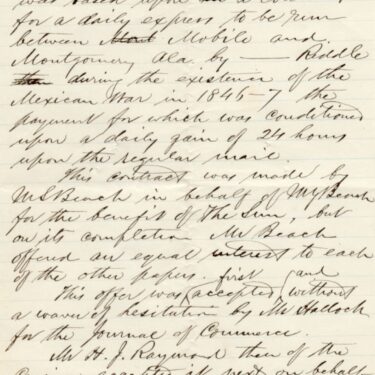 was based upon in a con
for a daily express to be run
between Mont Mobile and
Montgomery Ala. by — Riddle
during the existence of the
Mexican War in 1846-7 the
payment for which was conditioned
upon a daily gain of 24 hours
upon the regular mail.
This contract was made by
M S Beach in behalf of M Y Beach
for the benefit of The Sun, but
on its completion Mr Beach
offered an equal interest to each
of the other papers.
This offer was first accepted, and without
a waver of hesitation by Mr Hallock
for the Journal of Commerce.
Mr H. J. Raymond then of the
accepted it next on behalf